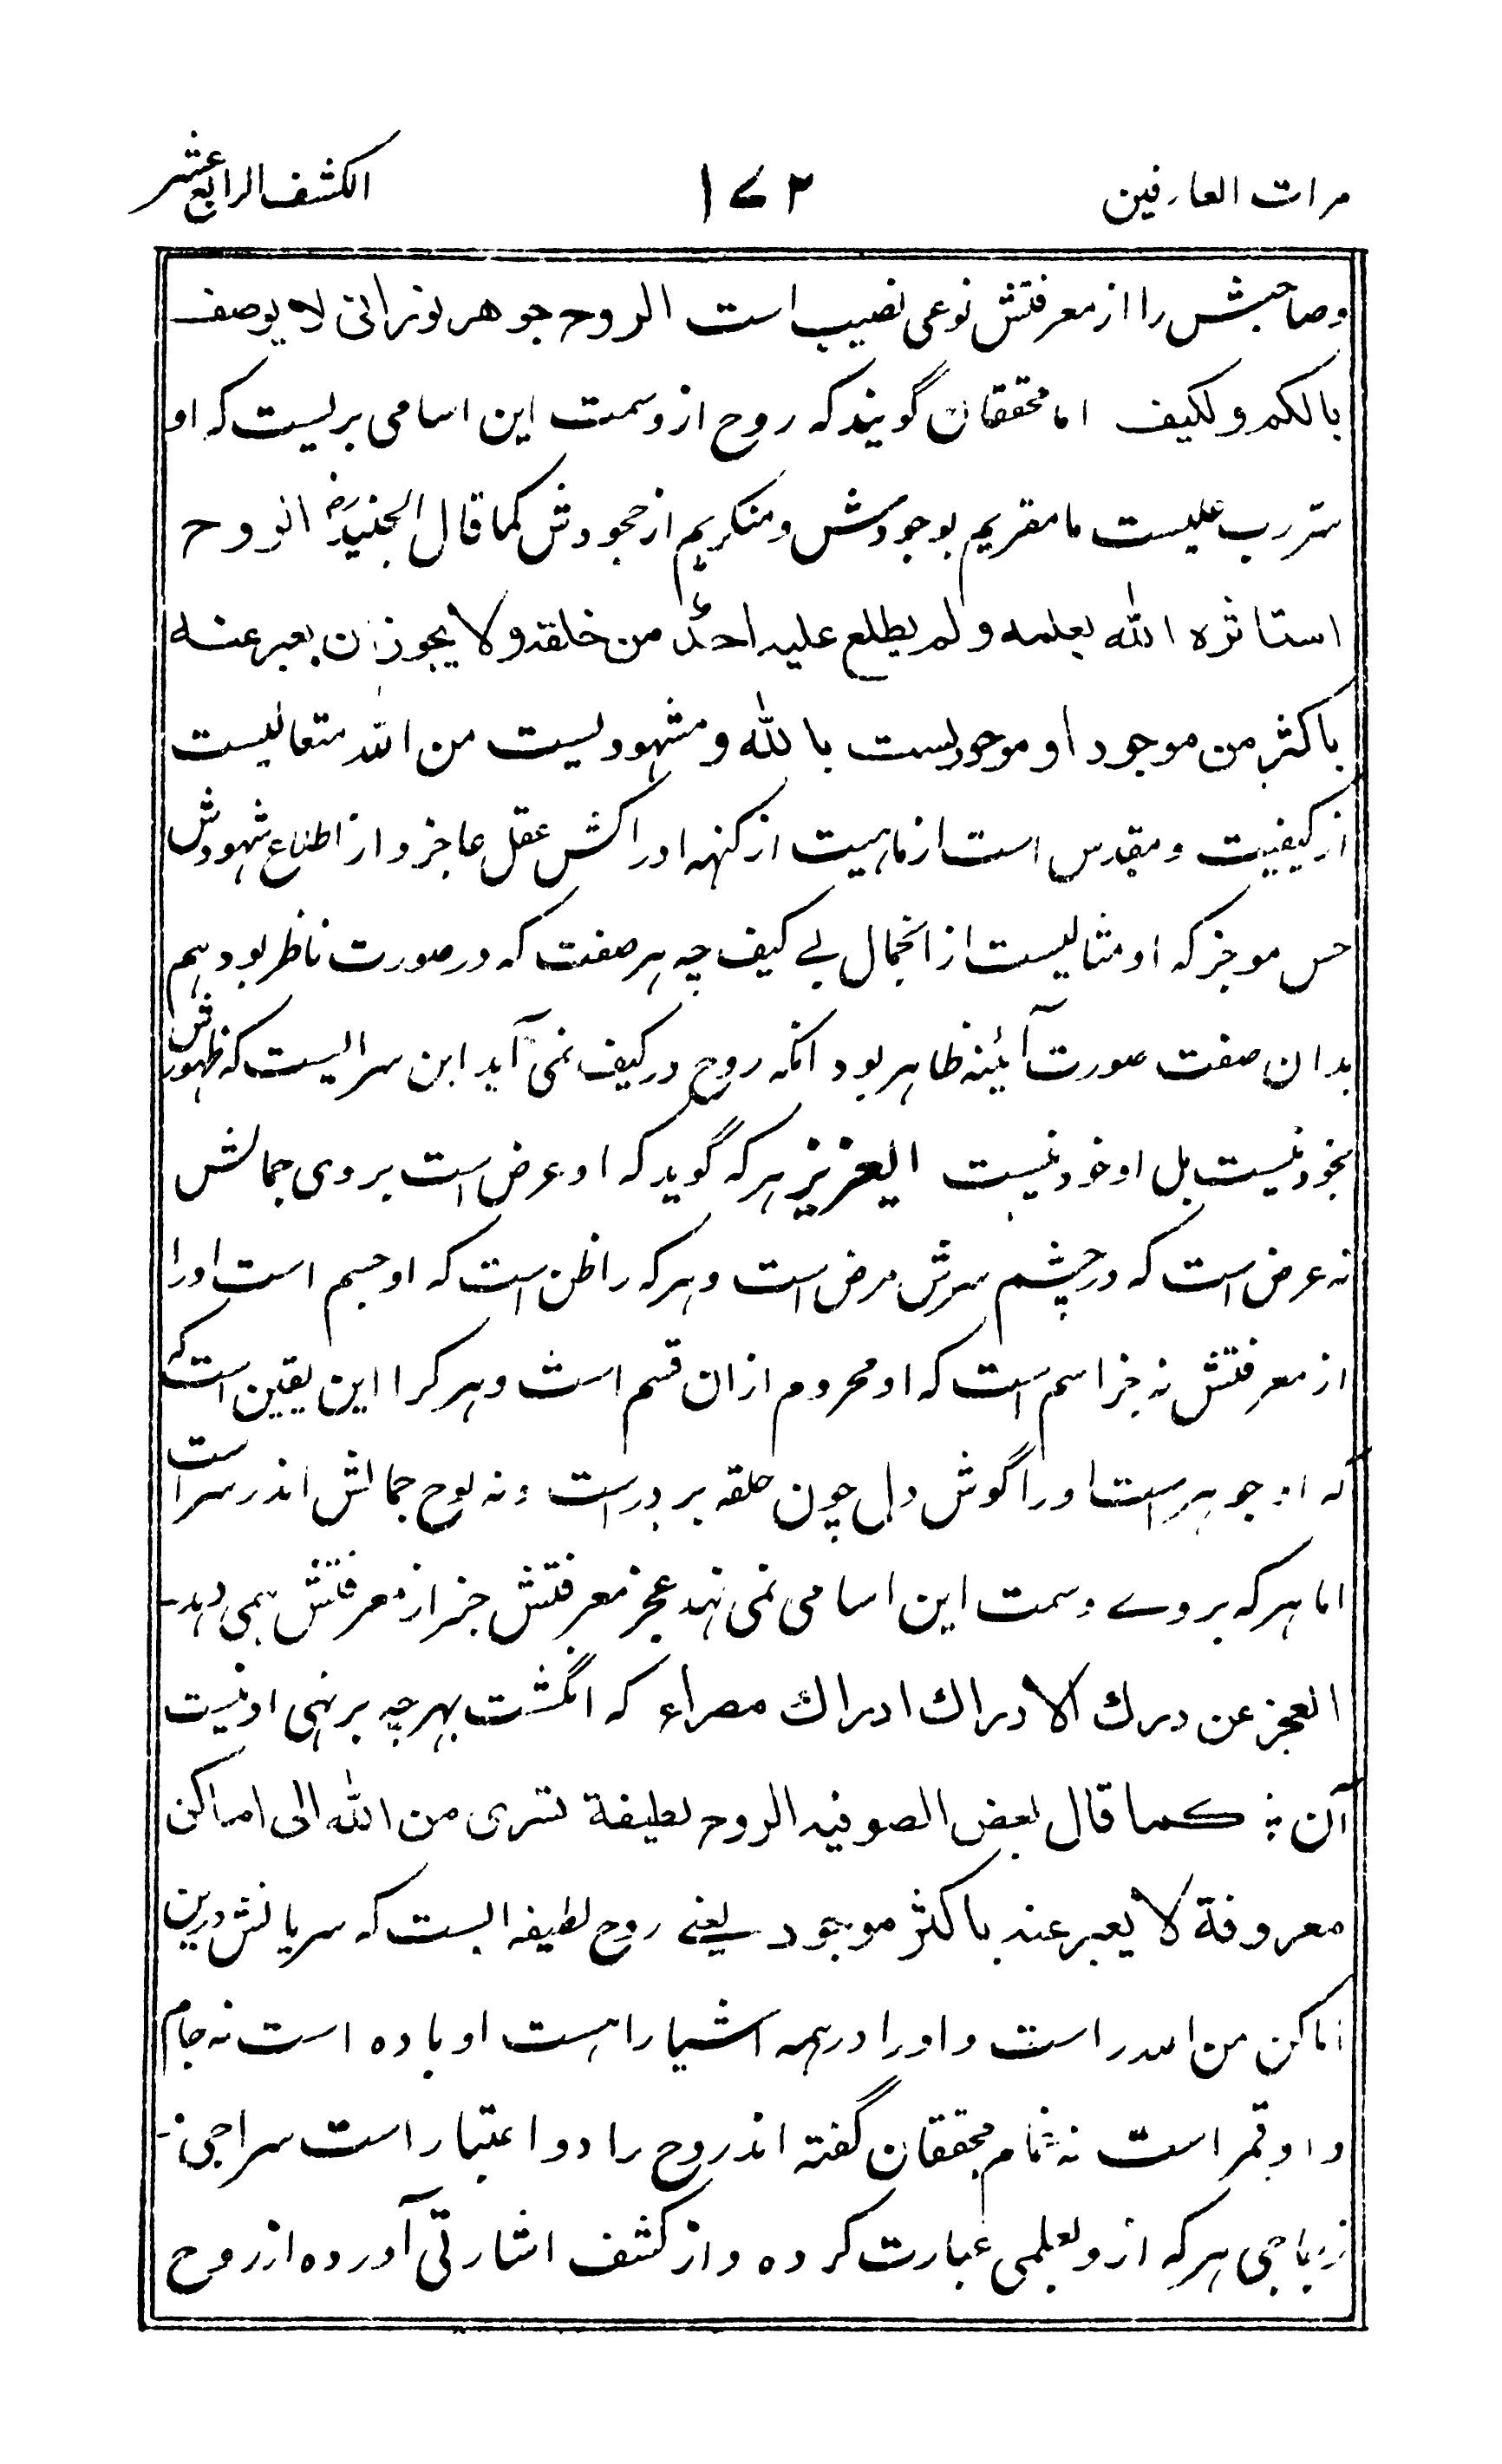 مرات العارفین ۱۷۲ الکشف الرابع عشر
وصاحبش را از معرفتش نوعی نصیب است الروح جوهر نورانی لا یوصف
بالکم ولکیف اما محققان گویند که روح از وسمت این اسامی بریست که او
سر رب علیست ما مقریم بوجودش ومنکریم از حجودش کما قال الجنیدؓ الروح
استاثره الله بعلمه ولم یطلع علیه احدٌ من خلقه ولا یجوز ان یعبر عنه
باکثر من موجود او موجودیست بالله ومشهودیست من الله متعالیست
از کیفیت ومقدس است از ماهیت از کنهه ادراکش عقل عاجز و از اطلاع شهودش
حس موجز که او مثالیست از انجمال بے کیف چه هر صفت که در صورت ناظر بود هم
بدان صفت صورت آئینه ظاهر بود انکه روح در کیف نمی آید این سرالیست که ظهورش
بخود نیست بل او خود نیست ایعزیز هر که گوید که او عرض است بروی جمالش
نه عرض است که در چشم سرش مرض است وهر که را ظن است که او جسم است اورا
از معرفتش نه جز اسم است که او محروم ازان قسم است وهر کرا این یقین است که
که او جوهر است اورا گوش دل چون حلقه بر در است ونه لوح جمالش اندر سر است
اما هر که بروے وسمت این اسامی نمی نهد عجز معرفتش خبر از معرفتش همی دهد
العجز عن درك الادراك ادراك مصراع که انگشت بهر چه بر نهی او نیست
آن ؞ کما قال بعض الصوفیه الروح لطیفة تسری من الله الی اماکن
معروفة لا یعبر عنه باکثر موجود یعنے روح لطیفه ایست که سریانش درین
اماکن من است واورا در همه اشیا راهست او باده است نه جام
واو قمر است نه محققان گفته اند روح را دو اعتبار است سراجی
زجاجی هر که ازو بعلمی عبارت کرده و از کشف اشارتی آورده از روح